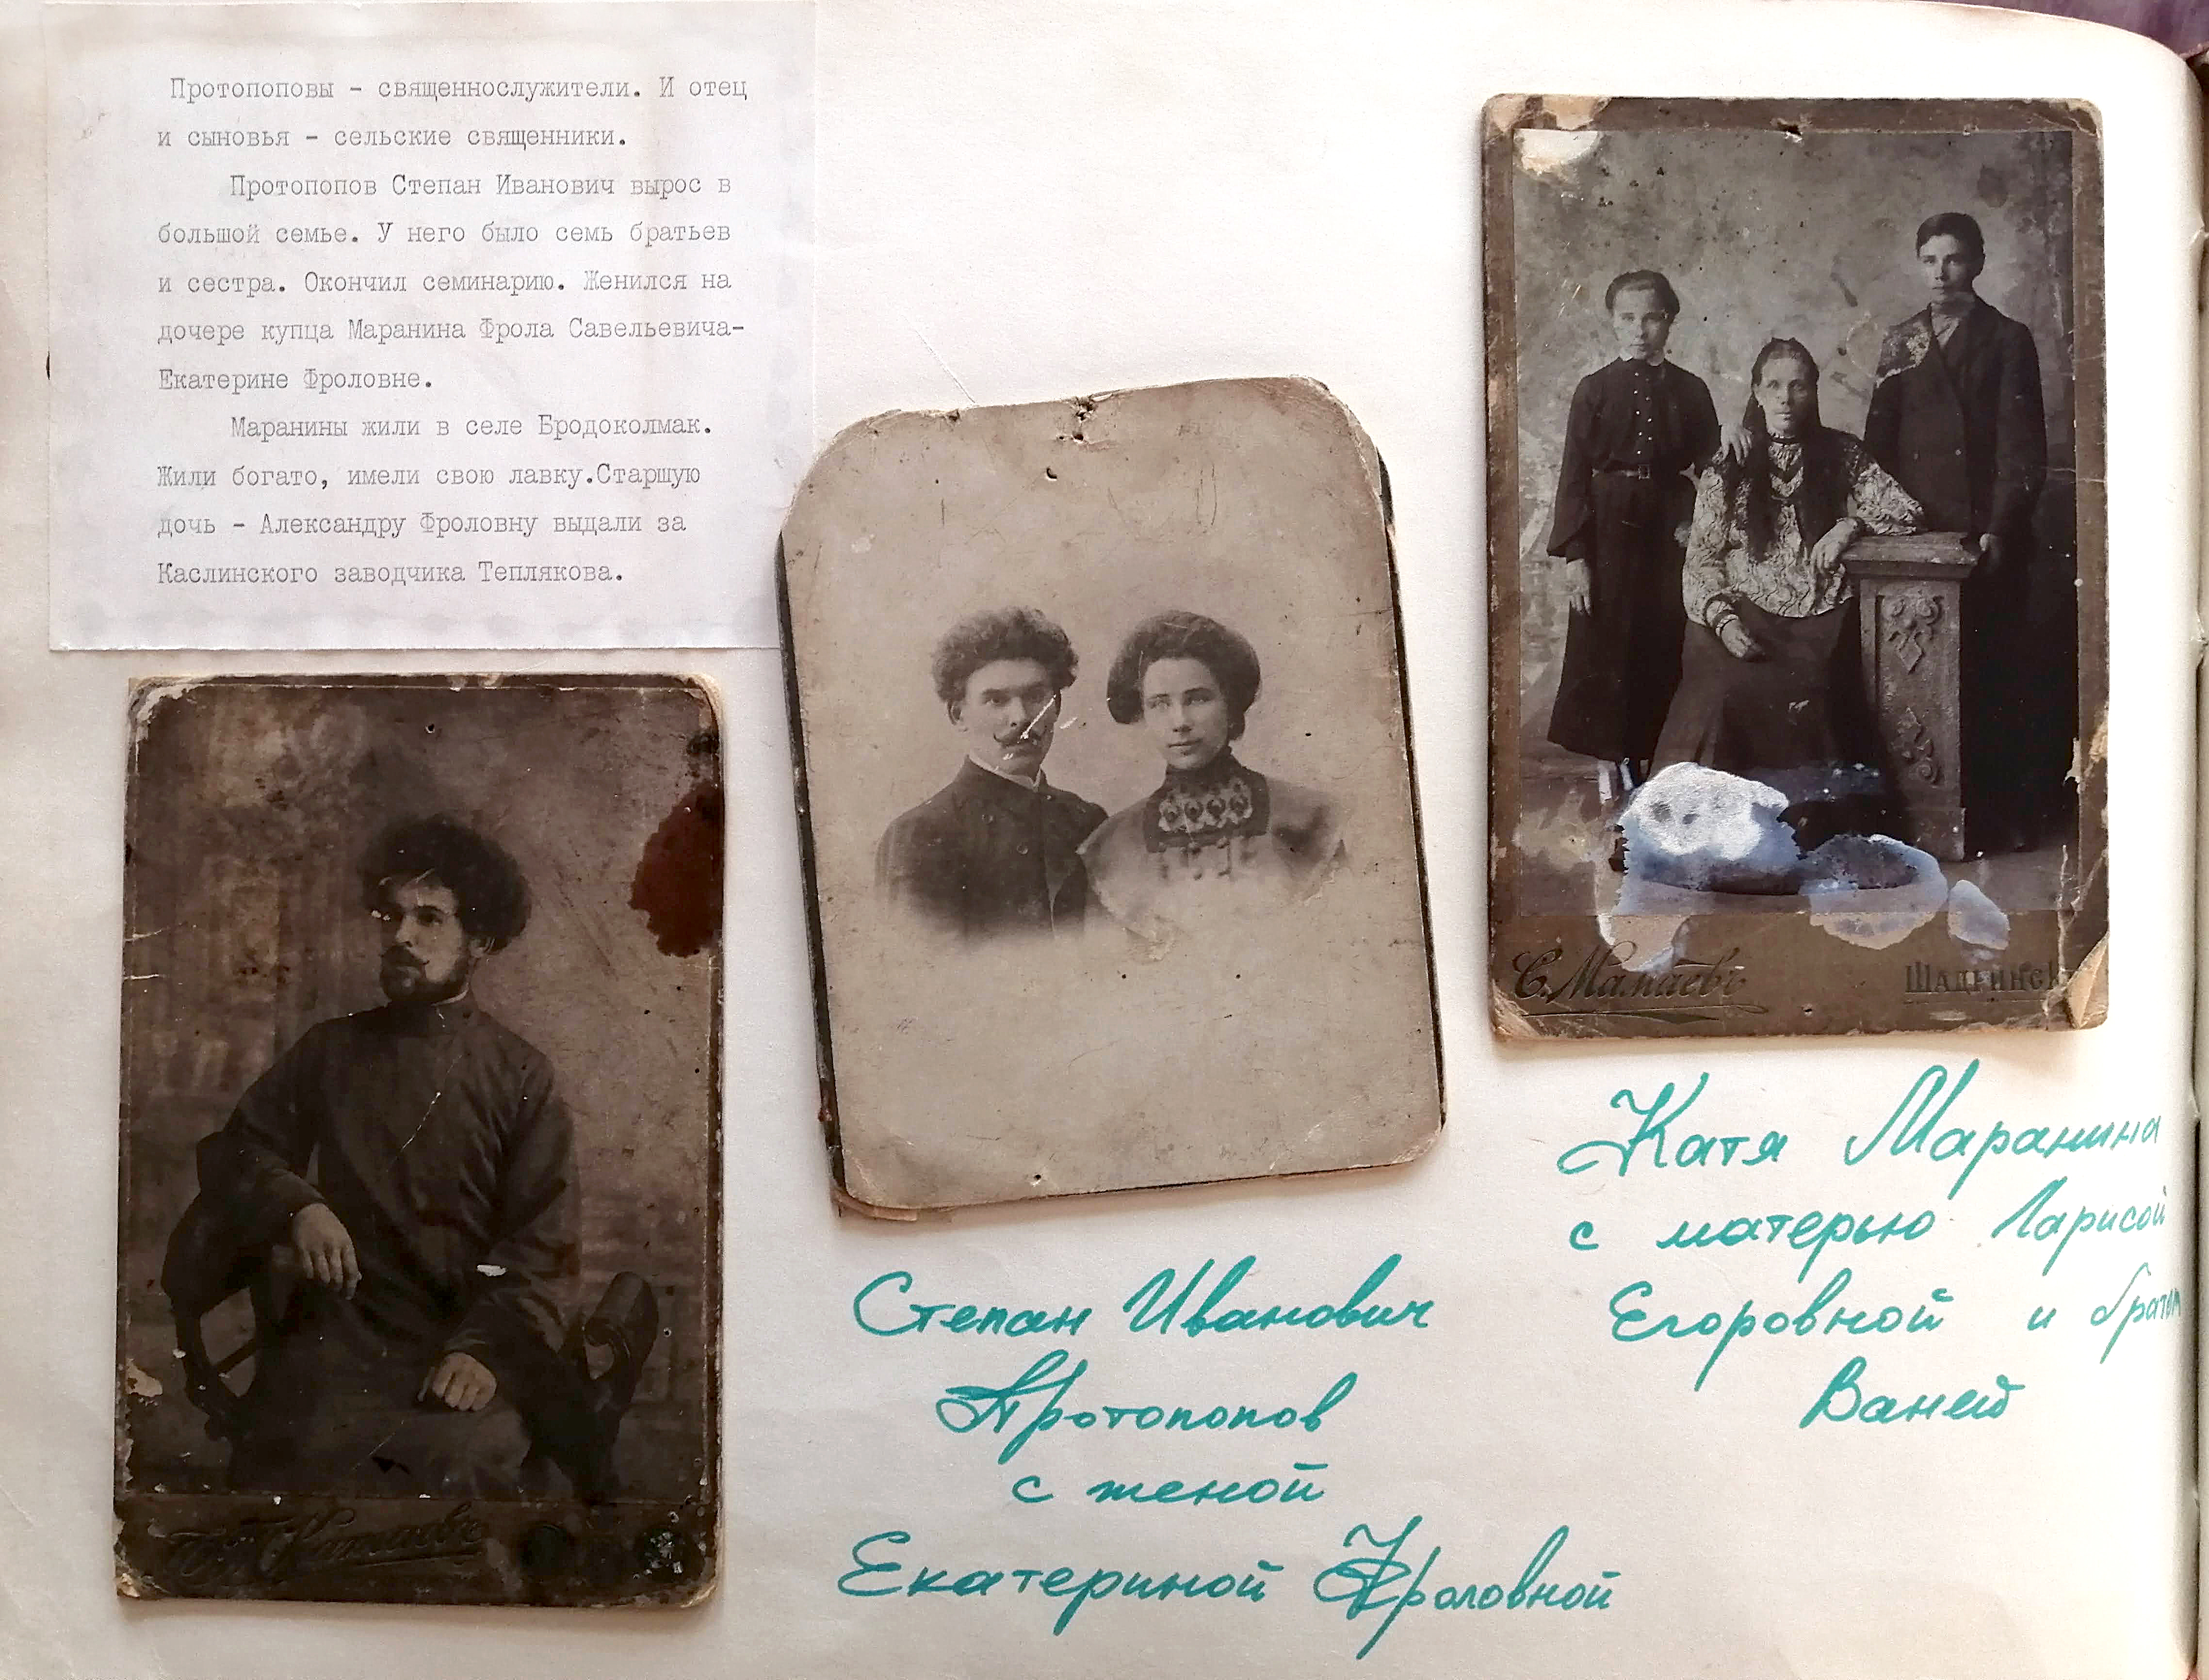 Протопоповы - священнослужители. И отец
и сыновья - сельские священники.
Протопопов Степан Иванович вырос в
большой семье. У него было семь братьев
и сестра. Окончил семинарию. Женился на
дочере купца Маранина Фрола Савельевича-
Екатерине Фроловне.
Маранины жили в селе Бродоколмак.
Жили богато, имели свою лавку.Старшую
дочь - Александру Фроловну выдали за
Каслинского заводчика Теплякова.
С. Мамаевъ
Шадринск
Катя Маранина
с матерью Ларисой
Егоровной и братом
Ваней
Степан Иванович
Протопопов
с женой
Екатериной Фроловной